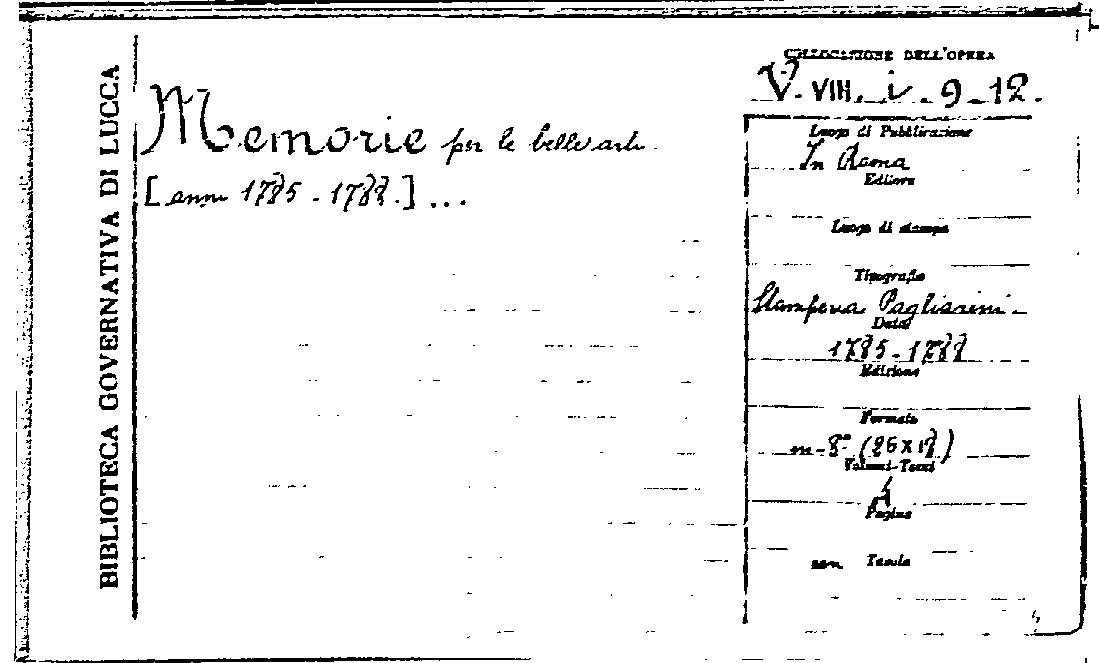 BIBLIOTECA GOVERNATIVA DI LUCCA
Memorie per le belle arti
[anni 1785-1788.] ...
COLLOCAZIONE DELL'OPERA
V. VIII. i. 9-12.
Luogo di Pubblicazione
In Roma
Editore
Luogo di stampa
Tipografia
Stamperia Pagliarini -
Data
1785-1788
Edizione
Formato
in-8° (26x18)
Volumi-Tomi
4
Pagine
con Tavole